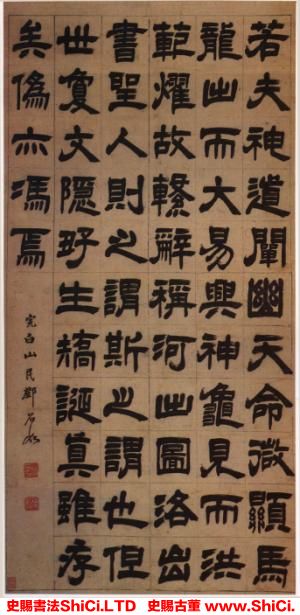 若夫神道闡幽天命微顯馬
龍出而大易興神龜見而洪
範燿故繫辭稱河出圖洛出
書聖人則之謂斯之謂也但
世敻文隱好生矯誕真雖存
矣偽亦馮焉
完白山民鄧石如
史賜書法ShiCi.LTD 史賜古董ShiCi.VIP